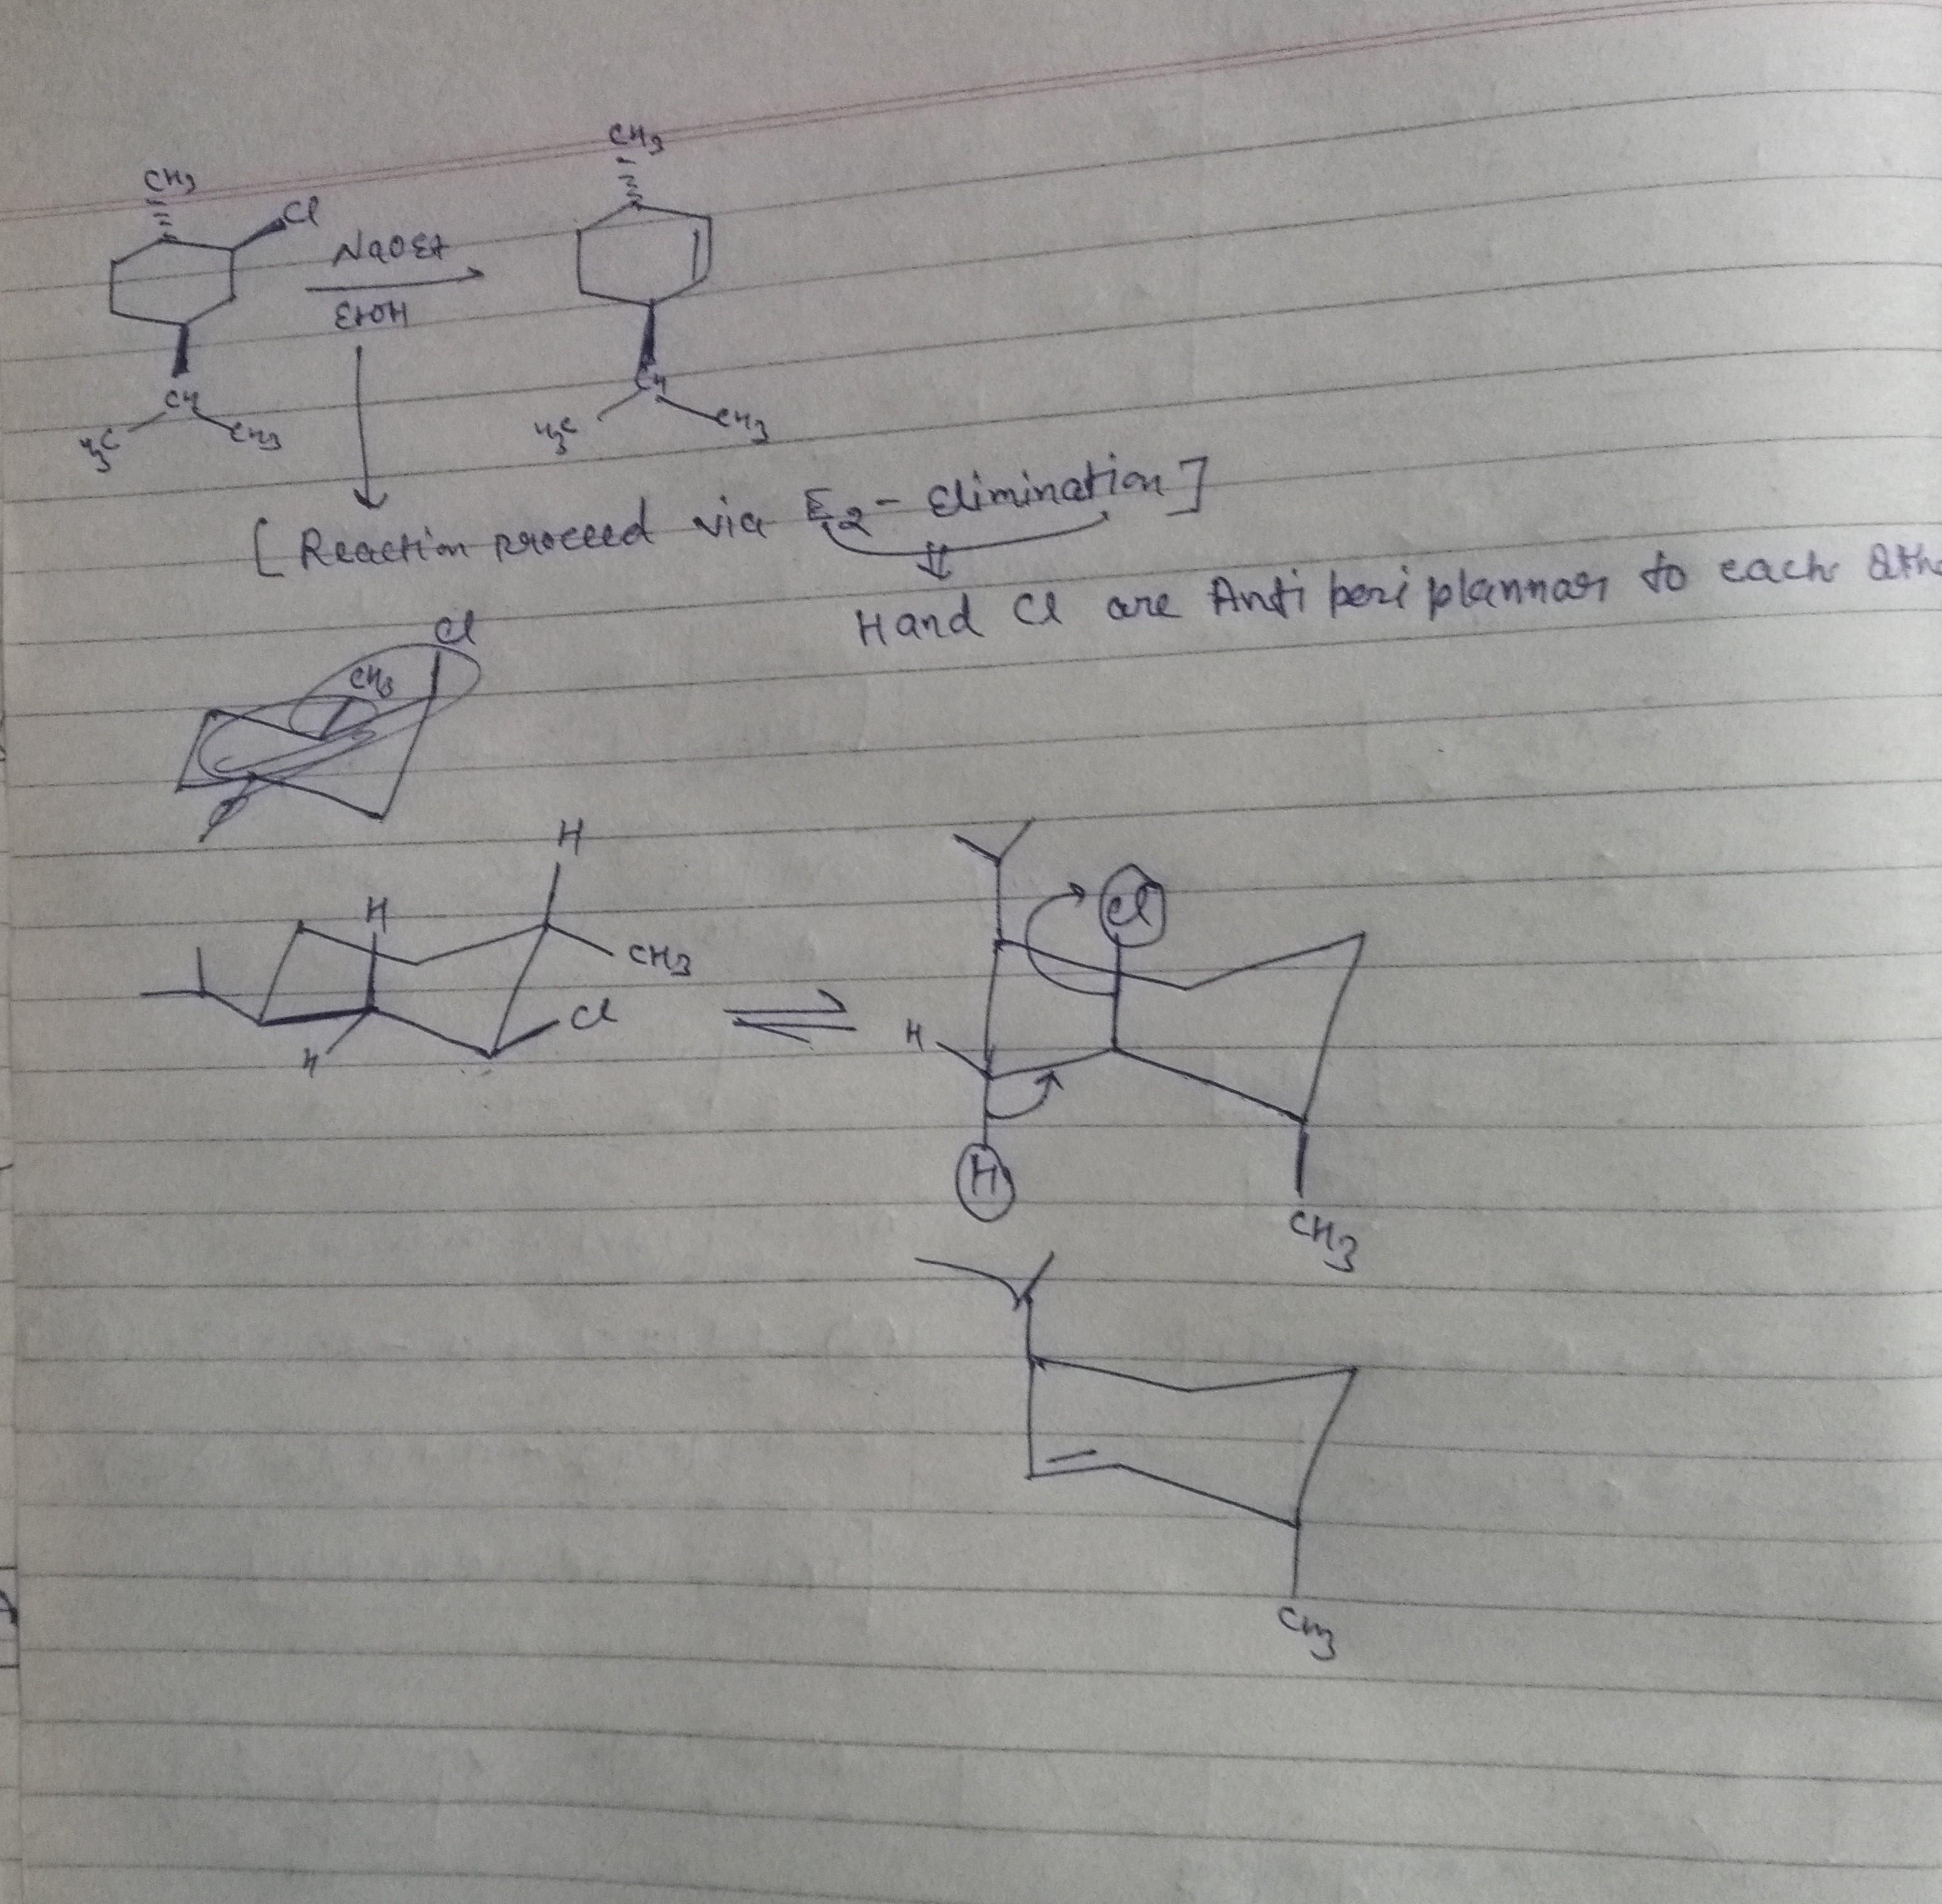 CH3
CH3
Cl
NaOEt
EtOH
CH
H3C
CH3
CH
H3C
CH3
[Reaction proceed via E2 - Elimination]
H and Cl are Anti peri plannar to each
Cl
CH3
H
H
CH3
Cl
H
Cl
H
H
CH3
CH3